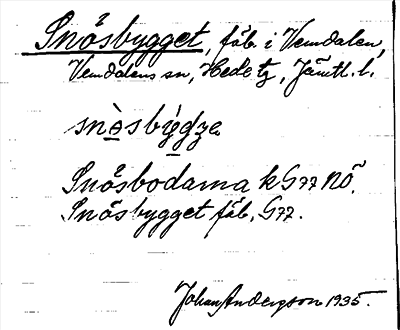 Snösbygget, fäb. i Vemdalen,
Vemdalens sn, Hede tg, Jämtl. l.
snə̀sbýgdze
Snösbodarna k G77 NÖ.
Snösbygget fäb, G77.
Johan Andersson 1935.